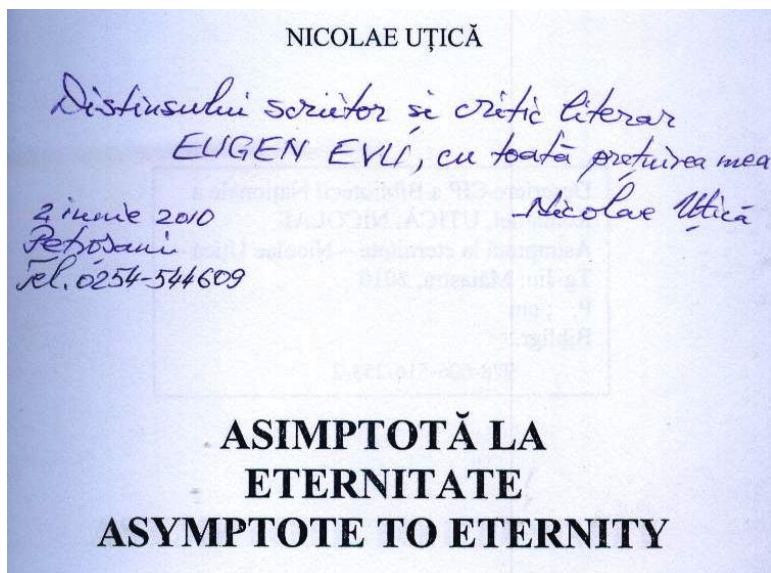 NICOLAE UȚICĂ
Distinsului scriitor și critic literar
EUGEN EVU, cu toată prețuirea mea
2 iunie 2010
-Nicolae Uțică
Petroșani
Tel. 0254-544609
ASIMPTOTĂ LA
ETERNITATE
ASYMPTOTE TO ETERNITY